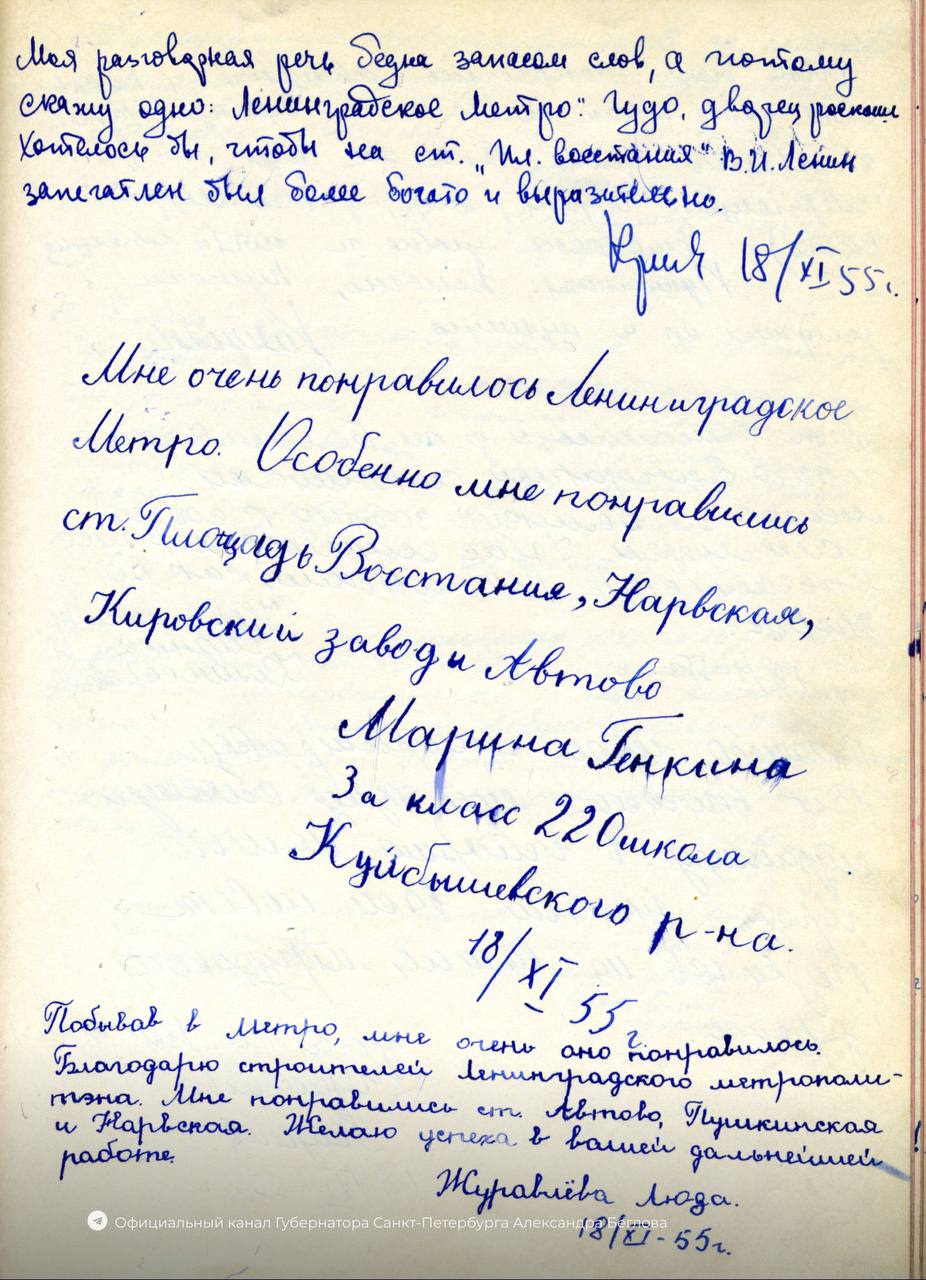 Моя разговорная речь бедна запасом слов, а поэтому
скажу одно: Ленинградское Метро": Чудо, дворец роскоши
Хотелось бы, чтобы на ст. „Пл. восстания" В.И. Ленин
запечатлен был более богато и выразительно.
18/XI 55г.
Мне очень понравилось Ленинградское
Метро. Особенно мне понравились
ст. Площадь Восстания, Нарвская,
Кировский завод и Автово
Марина Генкина
3а класс 220школа
Куйбышевского р-на.
18/XI 55г.
Побывав в метро, мне очень оно понравилось.
Благодарю строителей Ленинградского метрополи-
тэна. Мне понравились ст. Автово, Пушкинская
и Нарвская. Желаю успеха в вашей дальнейшей
работе.
Журавлёва Люда.
18/XI-55г.
Официальный канал Губернатора Санкт-Петербурга Александра Беглова